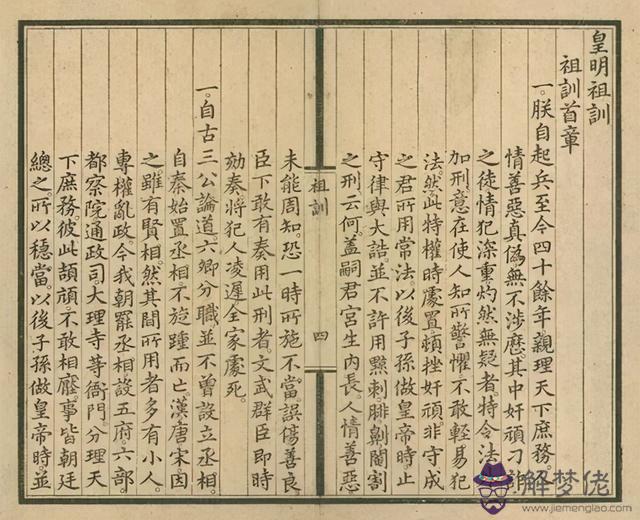 皇明祖訓
祖訓首章
一。朕自起兵至今四十餘年親理天下庶務。
情善惡真偽無不涉歷其中奸頑刁
之徒情犯深重灼然無疑者特令法
加刑意在使人知所警懼不敢輕易犯
法然此特權時處置頓挫奸頑非守成
之君所用常法以後子孫做皇帝時止
守律與大誥並不許用黥刺腓劓閹割
之刑云何蓋嗣君宮生內長人情善惡
祖訓
四
未能周知恐一時所施不當誤傷善良
臣下敢有奏用此刑者文武群臣即時
劾奏將犯人凌遲全家處死。
一。自古三公論道六卿分職並不曾設立丞相。
自秦始置丞相不旋踵而亡漢唐宋因
之雖有賢相然其間所用者多有小人
專權亂政今我朝罷丞相設五府六部
都察院通政司大理寺等衙門分理天
下庶務彼此頡頏不敢相壓事皆朝廷
總之所以穩當以後子孫做皇帝時並
解梦佬
www.jiemenglao.com